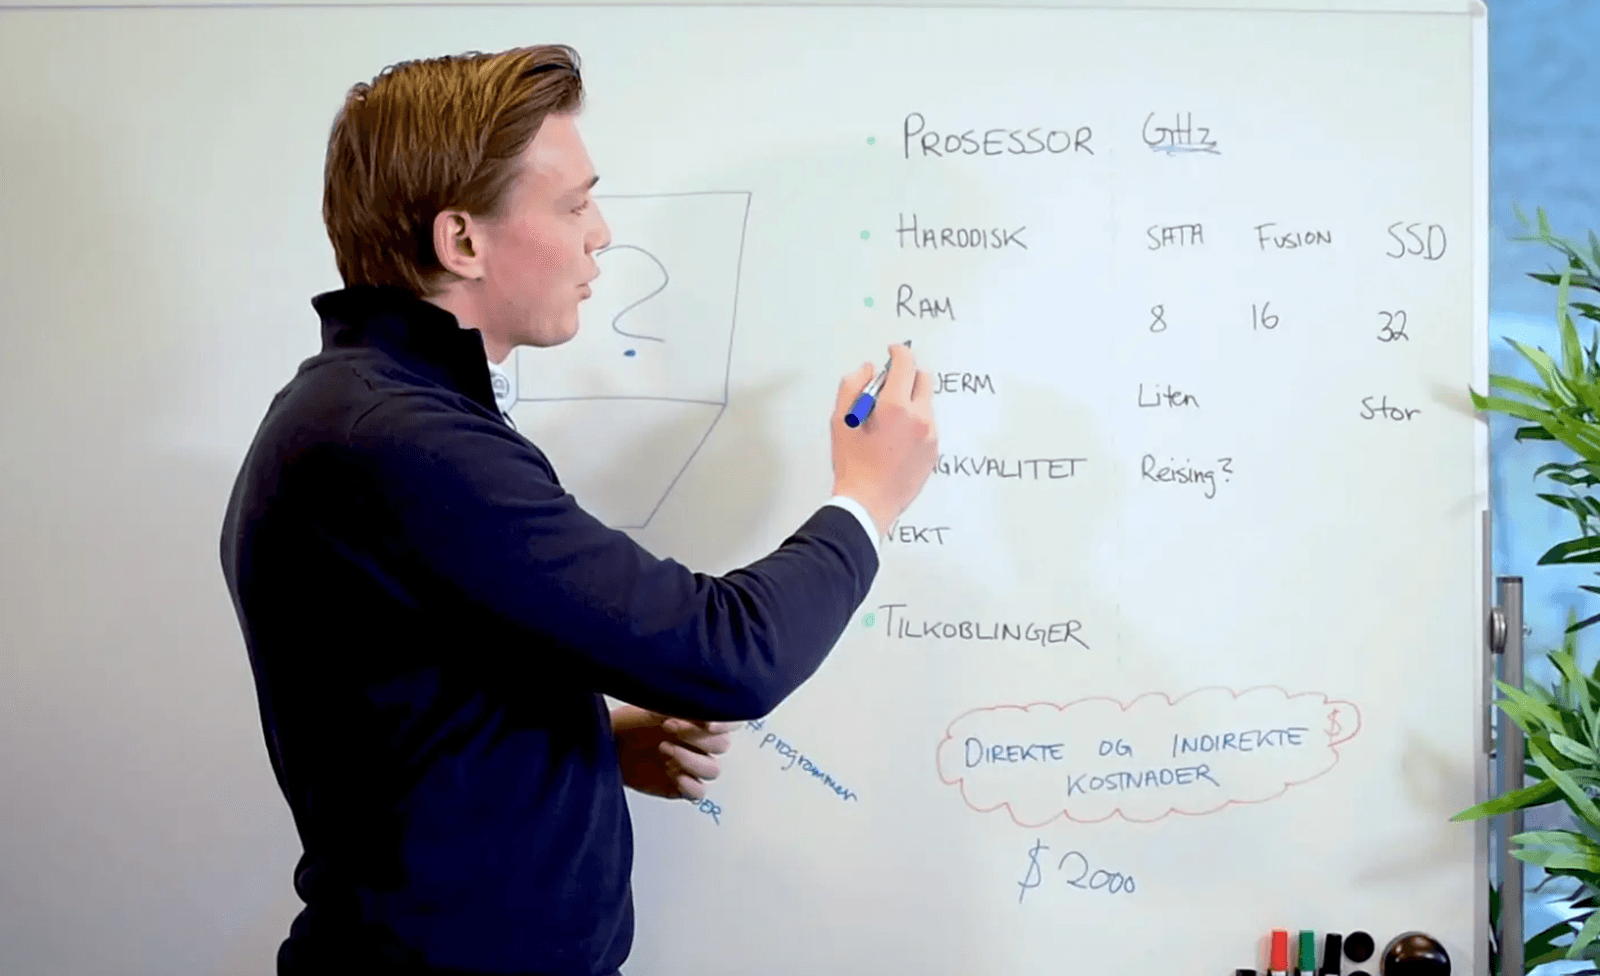 PROSESSOR GHz
HARDDISK SATA FUSION SSD
RAM 8 16 32
JERM Liten Stor
GKVALITET Reising?
VEKT
TILKOBLINGER
?
# programmer
DER
DIREKTE OG INDIREKTE $
KOSTNADER
$ 2000